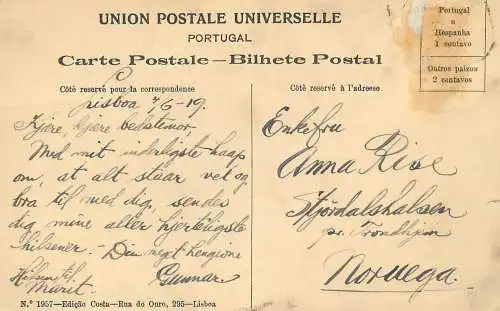 UNION POSTALE UNIVERSELLE
PORTUGAL
Carte Postale—Bilhete Postal
Portugal
e
Hespanha
1 centavo
Outros paizes
2 centavos
Côté reservé pour la correspondence
Côté reservé à l'adresse
Lisboa 7/6-19.
Kjære, kjære bedstemor,
Med mit inderligste haap
om, at alt staar vel og
bra til med dig, sendes
dig mine aller hjerteligste
hilsener. - Din hengivne
Gunnar.
Hilsen til
Marit.
Enkefru
Anna Rise
Stjördalshalsen
pr. Trondhjem
Norvega.
N.º 1957—Edição Costa—Rua do Ouro, 295—Lisboa